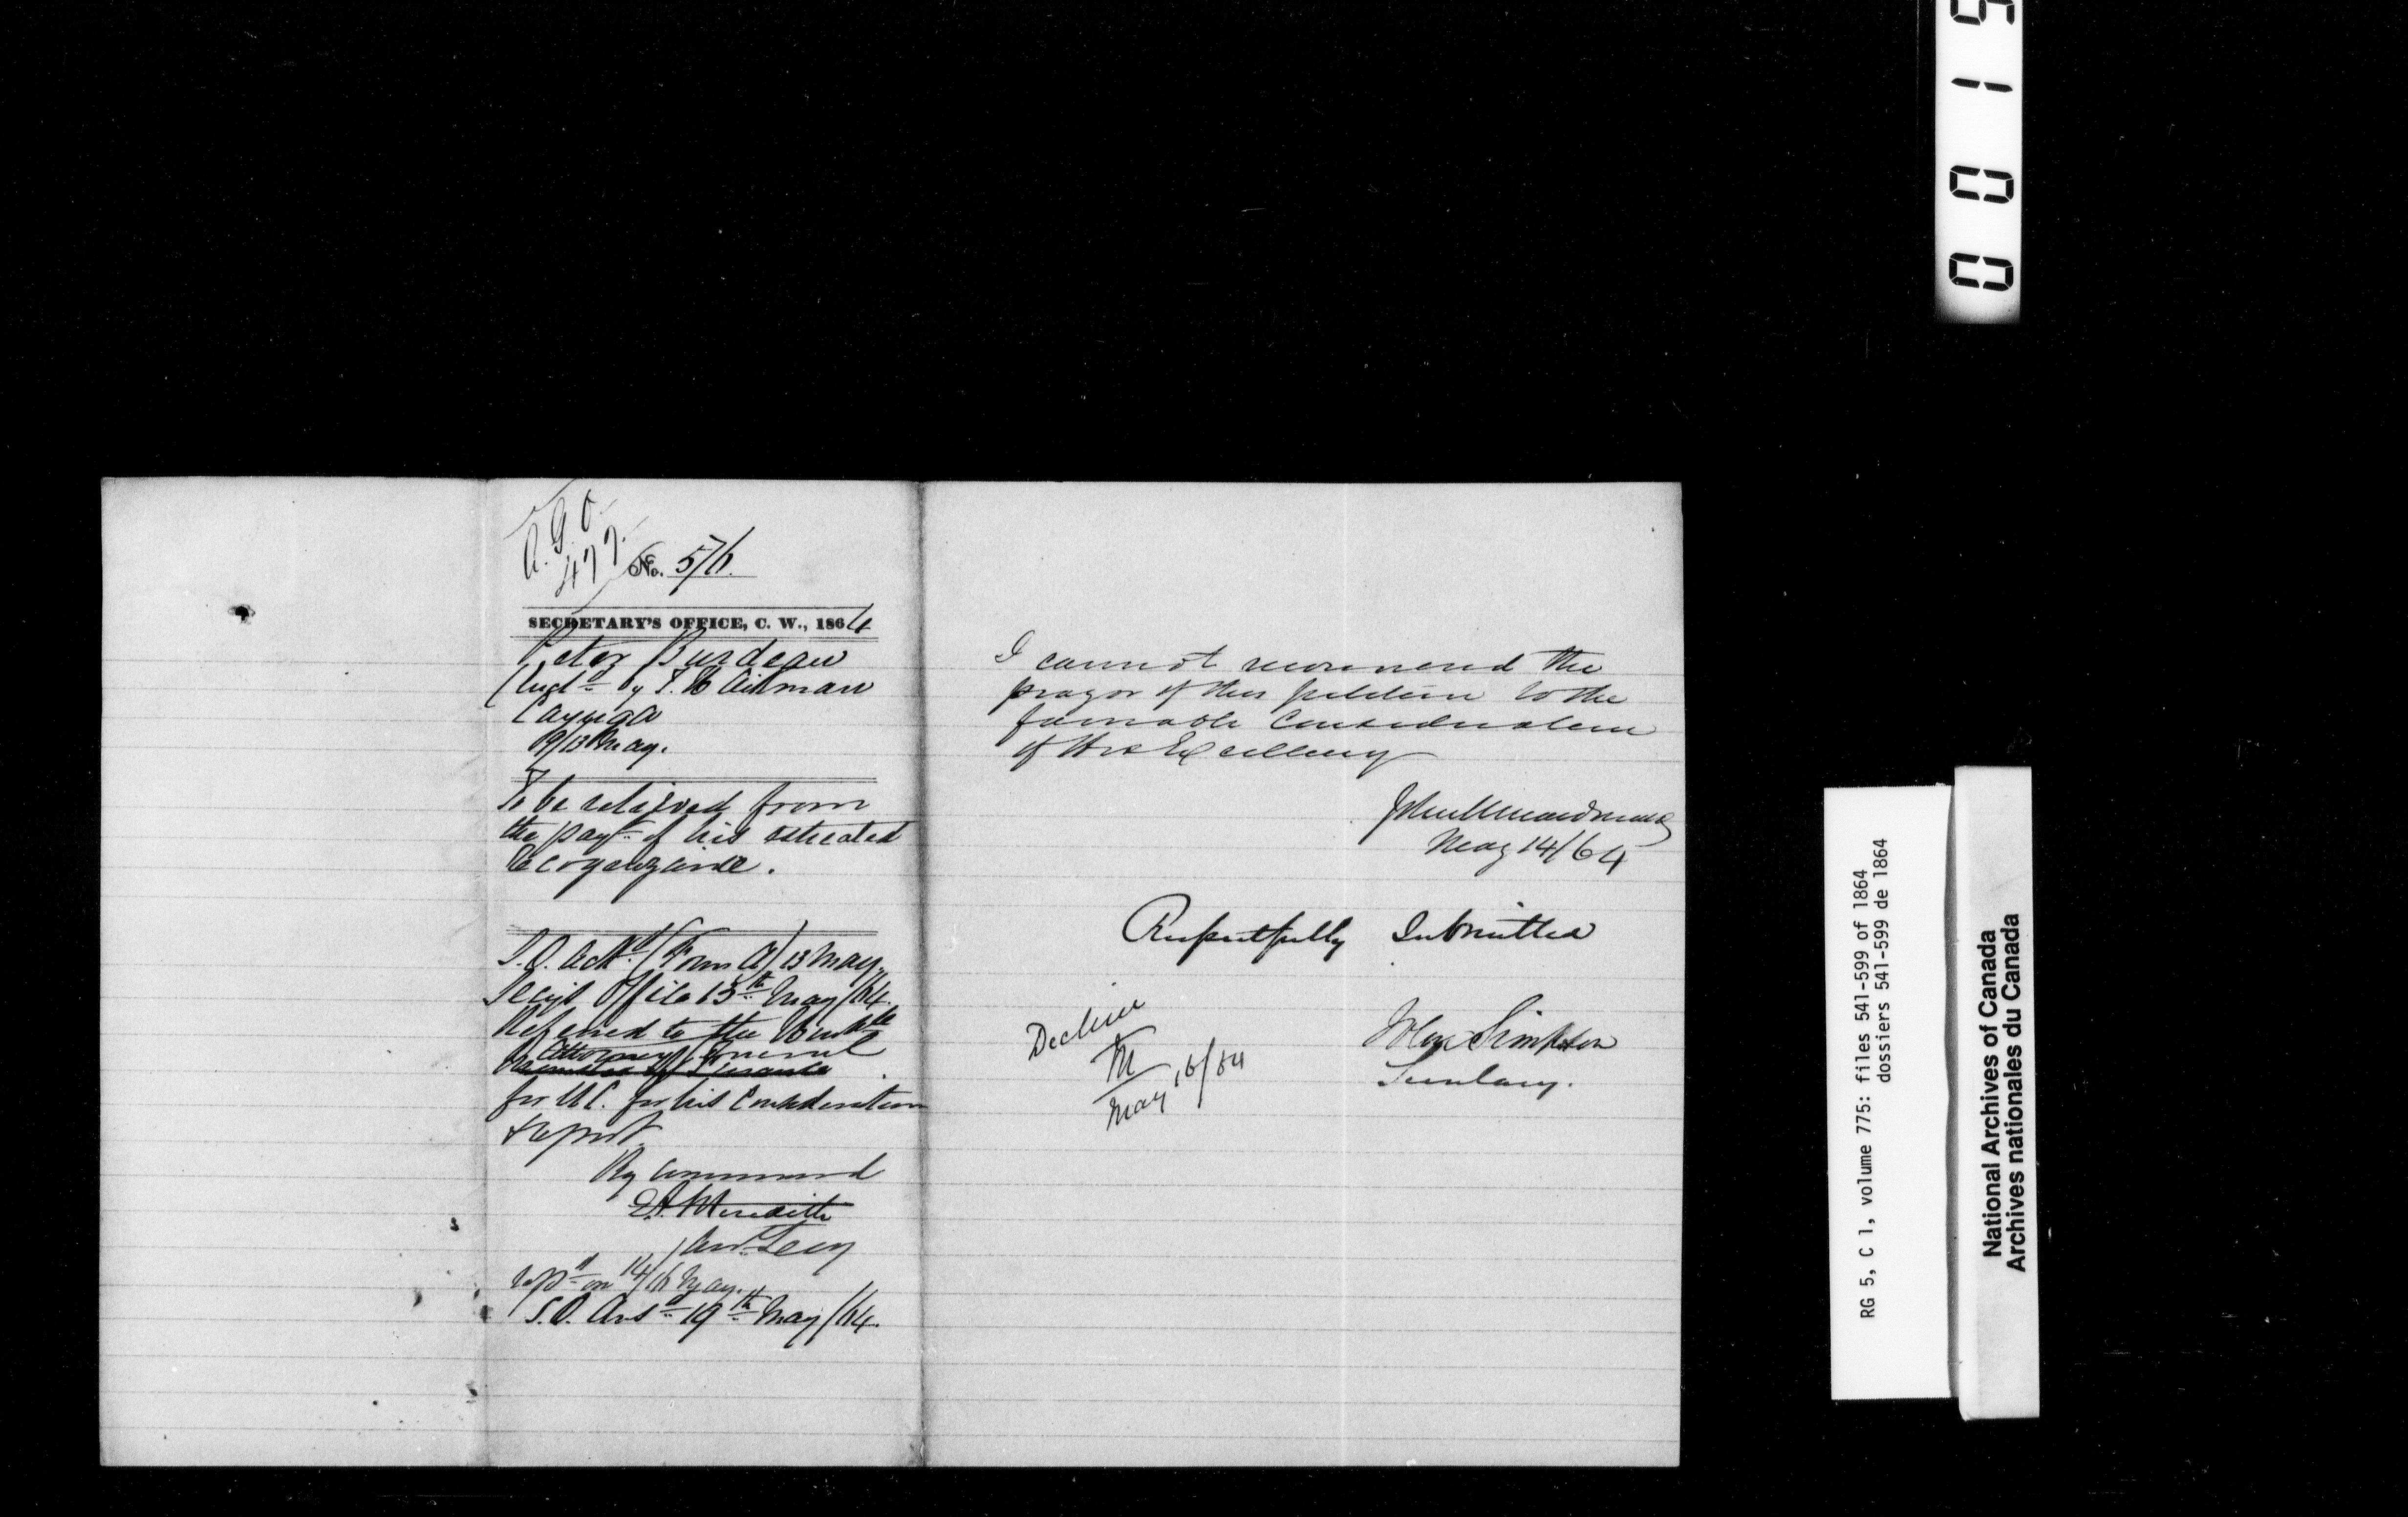 A. G. O.
477.
No. 576.
SECRETARY'S OFFICE, C. W., 1864
Peter Burdeau
(Incl.d by T. H. Aikman
Cayuga
9/13 May.
To be relieved from
the payt of his estreated
Recognizance.
S.O. Ackd (Form A) 13 May.
Secy's Office 13th May /64.
Referred to the Honble
Attorney General
Minister of Finance
for U.C. for his Consideration
& report
By Command
E.A. Meredith
Asst. Secy
Repd on 14/16 May.
S.O. Ansd 19th May /64.
I cannot recommend the
prayer of this petition to the
favorable Consideration
of His Excellency
John A Macdonald
May 14/64
Respectfully Submitted
Decline
M
May 16/64
John Simpson
Secretary.
0 0 1 5
RG 5, C 1, volume 775: files 541-599 of 1864
dossiers 541-599 de 1864
National Archives of Canada
Archives nationales du Canada